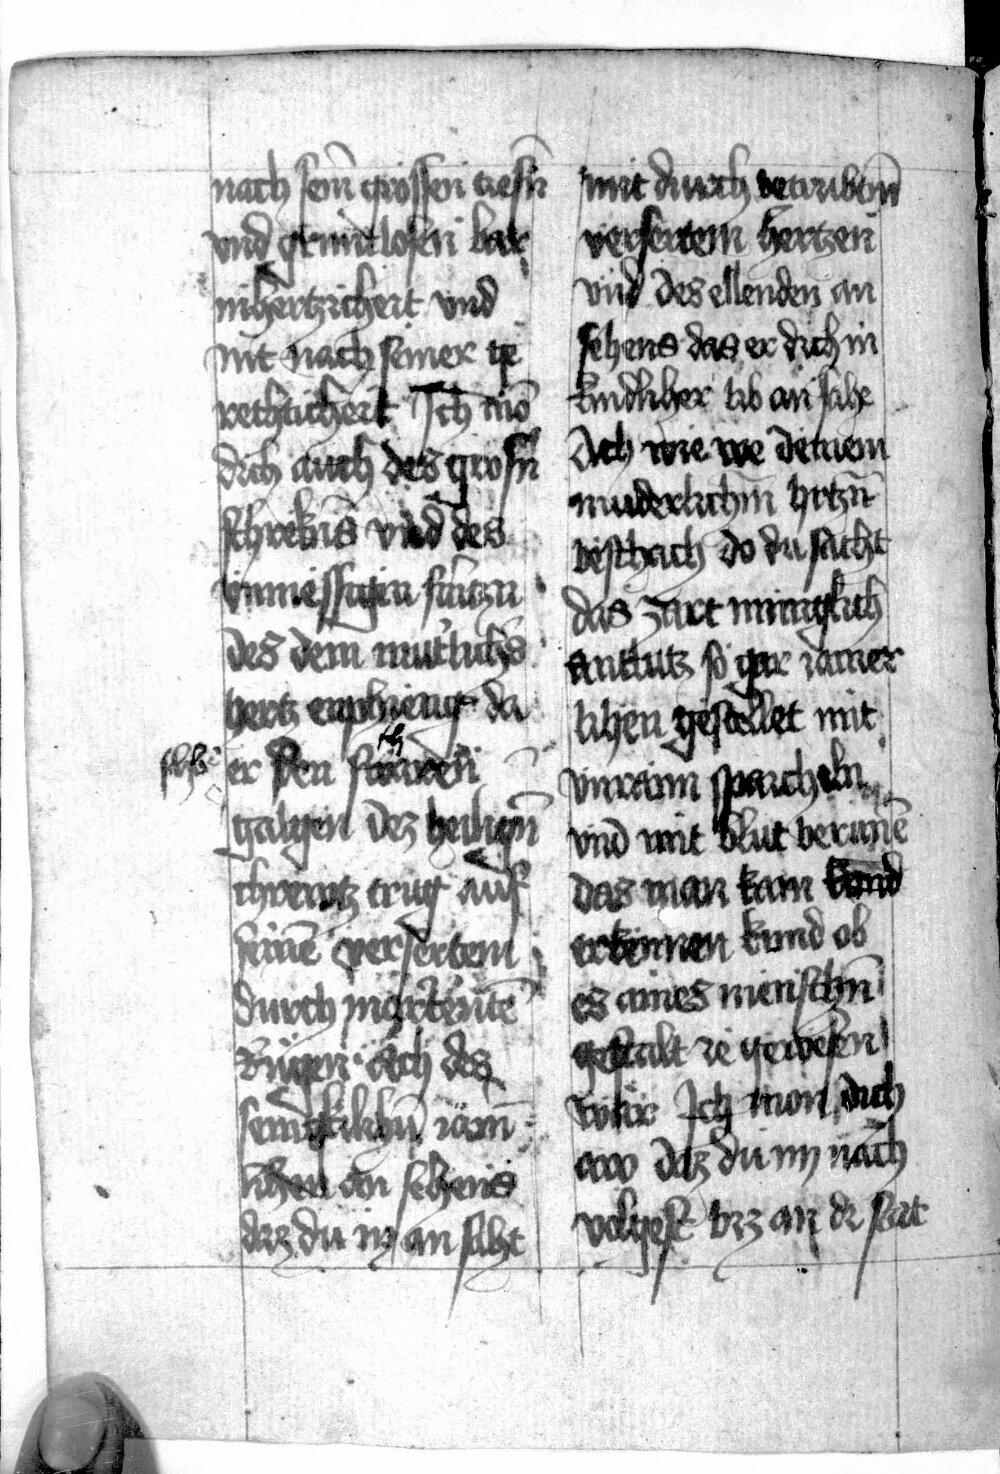 nach sein̄ grossen tiefn̄
vnd gruntlosen bar
mhertzicheit vnd
nit nach seiner ge
rechticheit Ich mō
dich auch des grosn̄
schrekns̄ vnd des
vnmessigin smtzn
des dein mut̄lichs̄
hertz enphieng da
er den swaren
galgen dez heilign̄
chreutz trug auf
seinē versertem
durch martertē
Rugen Ach des
iam̄
lichen an sehens
daz du in an saht
mit durch betrubtem̄
versertem hertzen
vnd des ellenden an
sehens das er dich in
kindlicher lib an sahe
Ach wie we deinem
muderlichm̄ hrtzn̄
beschach do du sächt
das zart minigklich
antlutz so gar iamer
lichen gestellet mit
vnrainn sparcheln
vnd mit blut berunē
das man kam kund
erkennen kund ob
es aines menschn̄
gestalt ie gewesen
wär Ich mon dich
daz du im nāch
volgest biz an di stat